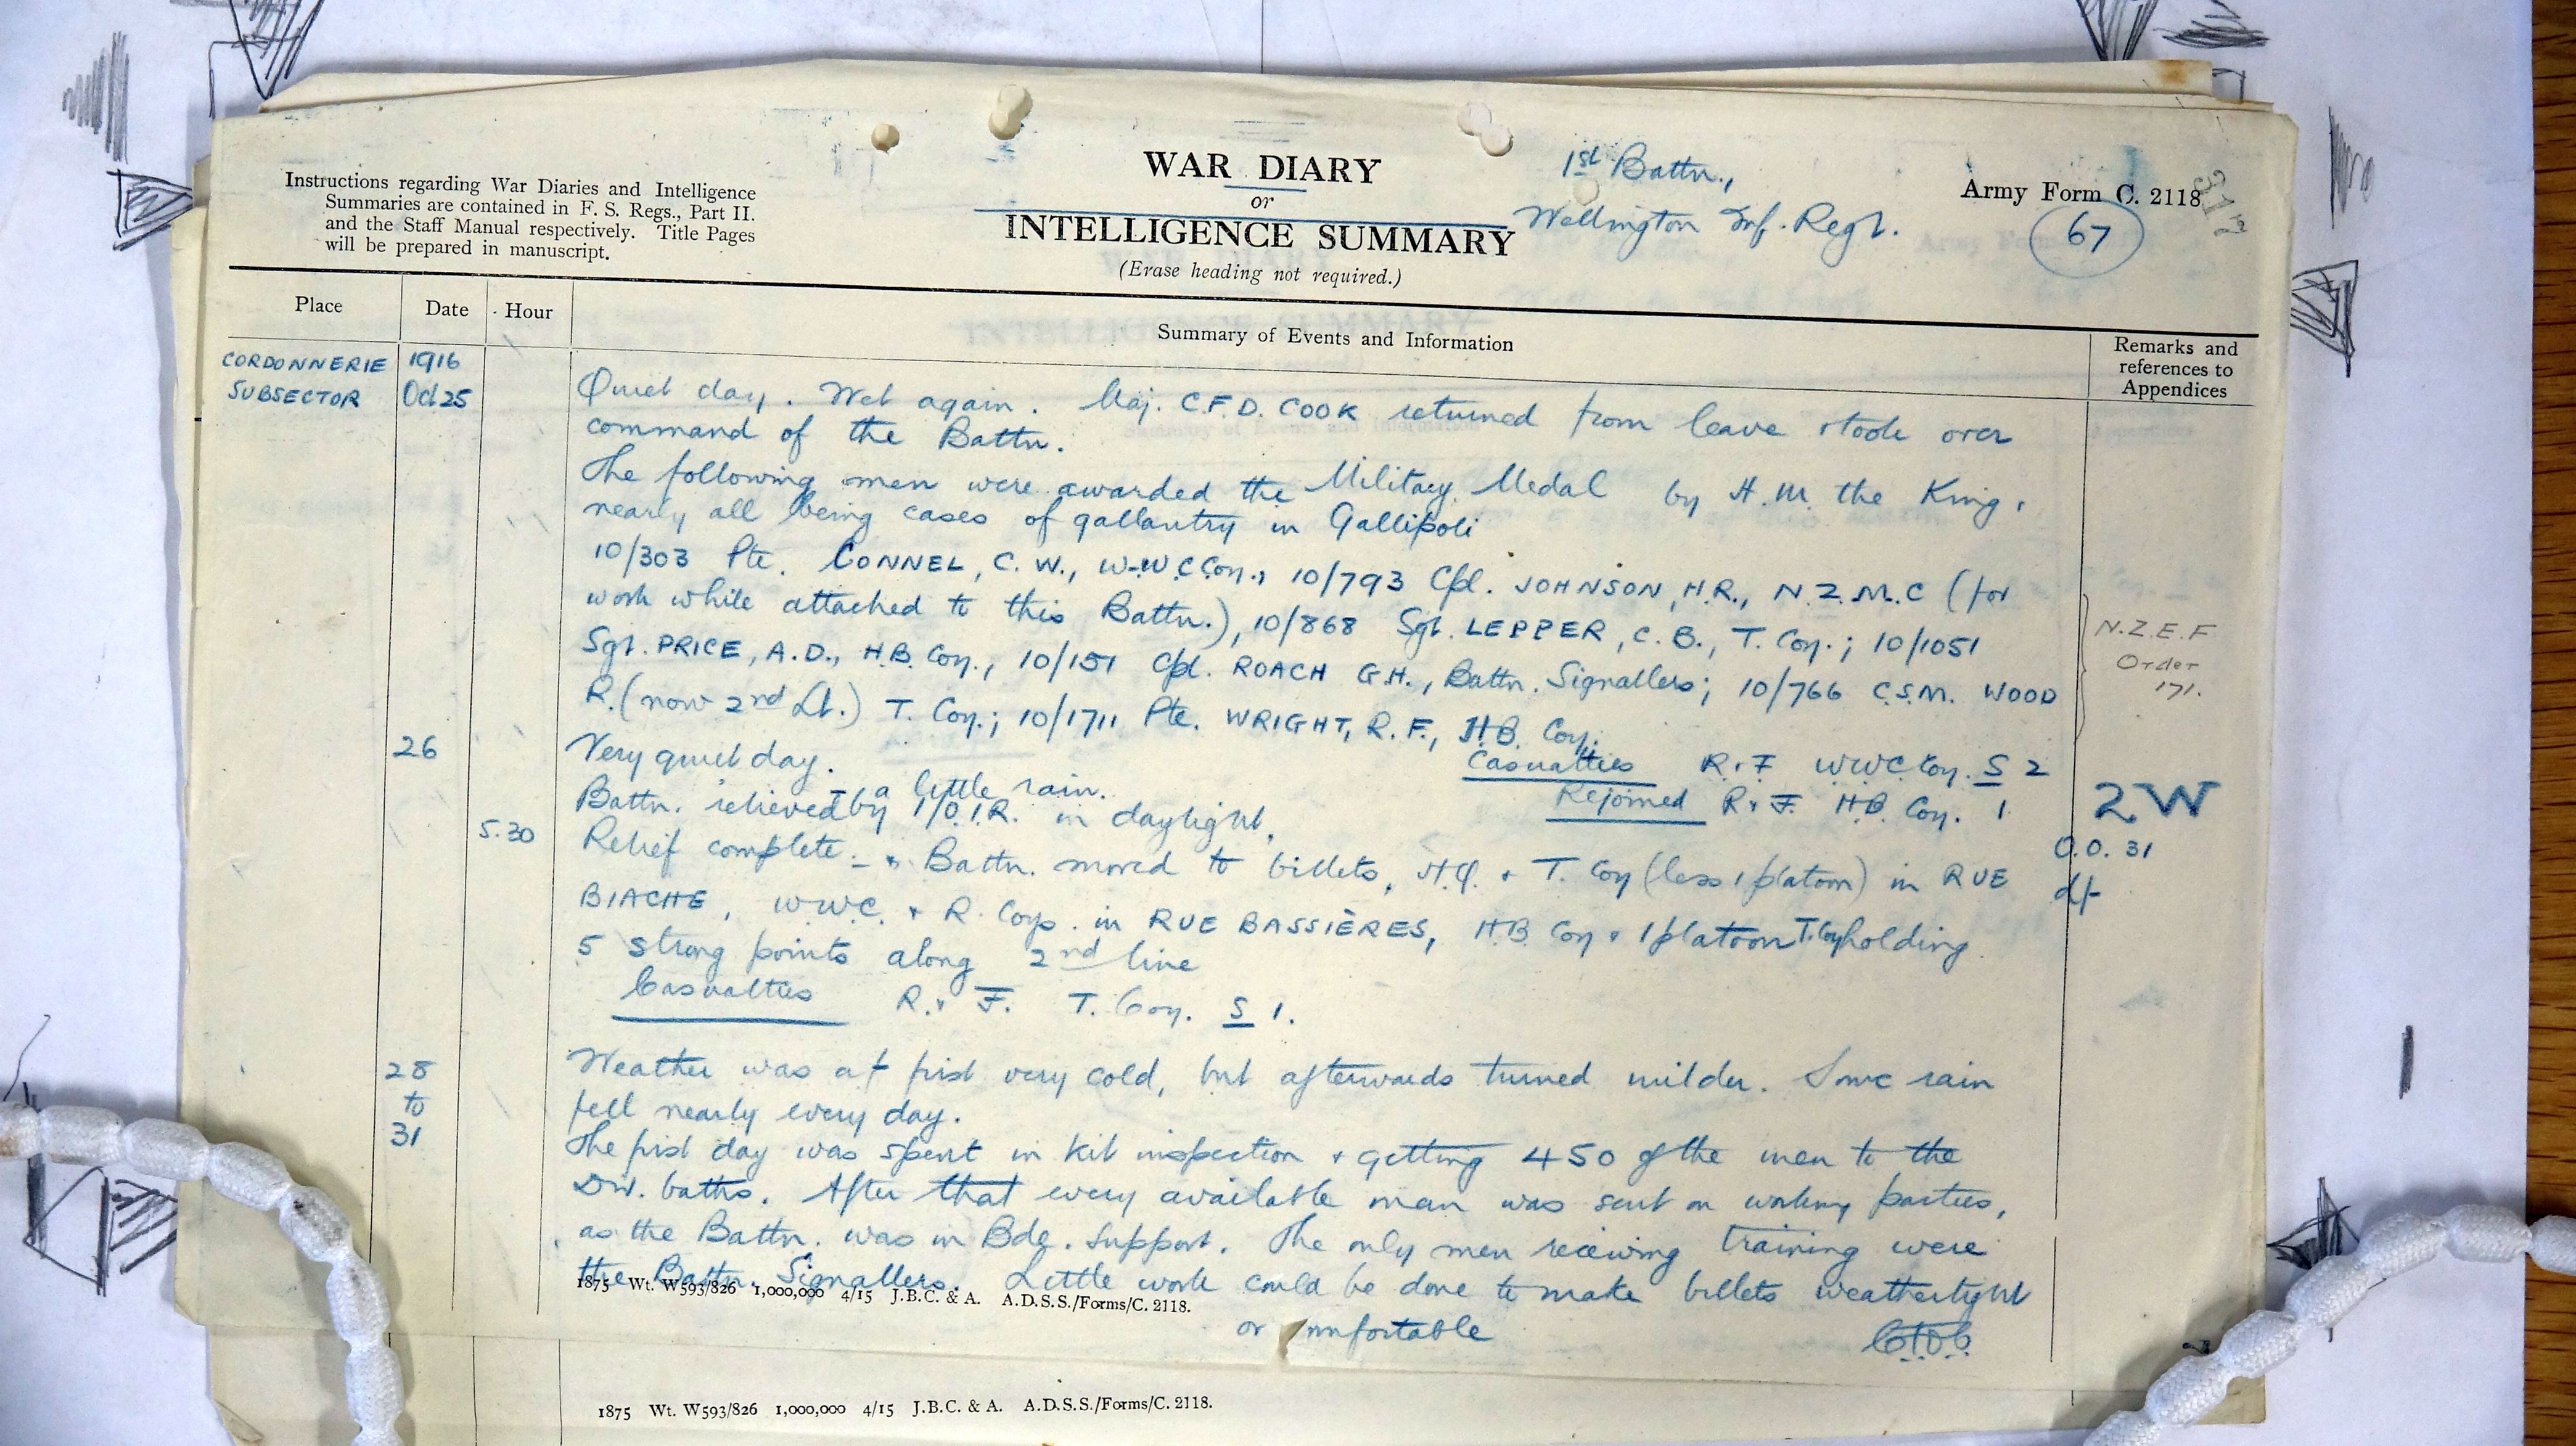 Instructions regarding War Diaries and Intelligence
Summaries are contained in F. S. Regs., Part II.
and the Staff Manual respectively. Title Pages
will be prepared in manuscript.
WAR DIARY
or
INTELLIGENCE SUMMARY
(Erase heading not required.)
1st Battn.,
Wellington Inf. Regt.
Army Form C. 2118
67
Place
Date
Hour
Summary of Events and Information
Remarks and
references to
Appendices
CORDONNERIE 1916
SUBSECTOR Oct 25
Quiet day. Wet again. Maj. C.F.D. COOK returned from leave & took over
command of the Battn.
The following men were awarded the Military Medal by H.M. the King,
nearly all being cases of gallantry in Gallipoli
10/303 Pte. CONNEL, C. W., W.W.C Coy., 10/793 Cpl. JOHNSON, H.R., N.Z.M.C (for
work while attached to this Battn.), 10/868 Sgt. LEPPER, C. B., T. Coy.; 10/1051
Sgt. PRICE, A.D., H.B. Coy., 10/151 Cpl. ROACH G.H., Battn. Signallers; 10/766 C.S.M. WOOD
R. (now 2nd Lt.) T. Coy.; 10/1711 Pte. WRIGHT, R. F., H.B. Coy.
N.Z.E.F
Order
171.
26 Very quiet day. a little rain.
Casualties R. & F WWC Coy. S 2
Rejoined R & F. H.B. Coy. 1
2W
Battn. relieved by 1/O.I.R. in daylight.
5.30 Relief complete - & Battn. moved to billets, H.Q. & T. Coy (less 1 platoon) in RUE
O.O. 31
BIACHE, W.W.C. & R. Coys. in RUE BASSIÈRES, H.B Coy & 1 platoon T. Coy holding
5 strong points along 2nd line
Casualties R. & F. T. Coy. S 1.
28
to
31
Weather was at first very cold, but afterwards turned milder. Some rain
fell nearly every day.
The first day was spent in kit inspection & getting 450 of the men to the
Div. baths. After that every available man was sent on working parties,
as the Battn. was in Bde. Support. The only men receiving training were
the Battn. Signallers. Little work could be done to make billets weathertight
or comfortable
1875 Wt. W593/826 1,000,000 4/15 J.B.C. & A. A.D.S.S./Forms/C. 2118.
1875 Wt. W593/826 1,000,000 4/15 J.B.C. & A. A.D.S.S./Forms/C. 2118.